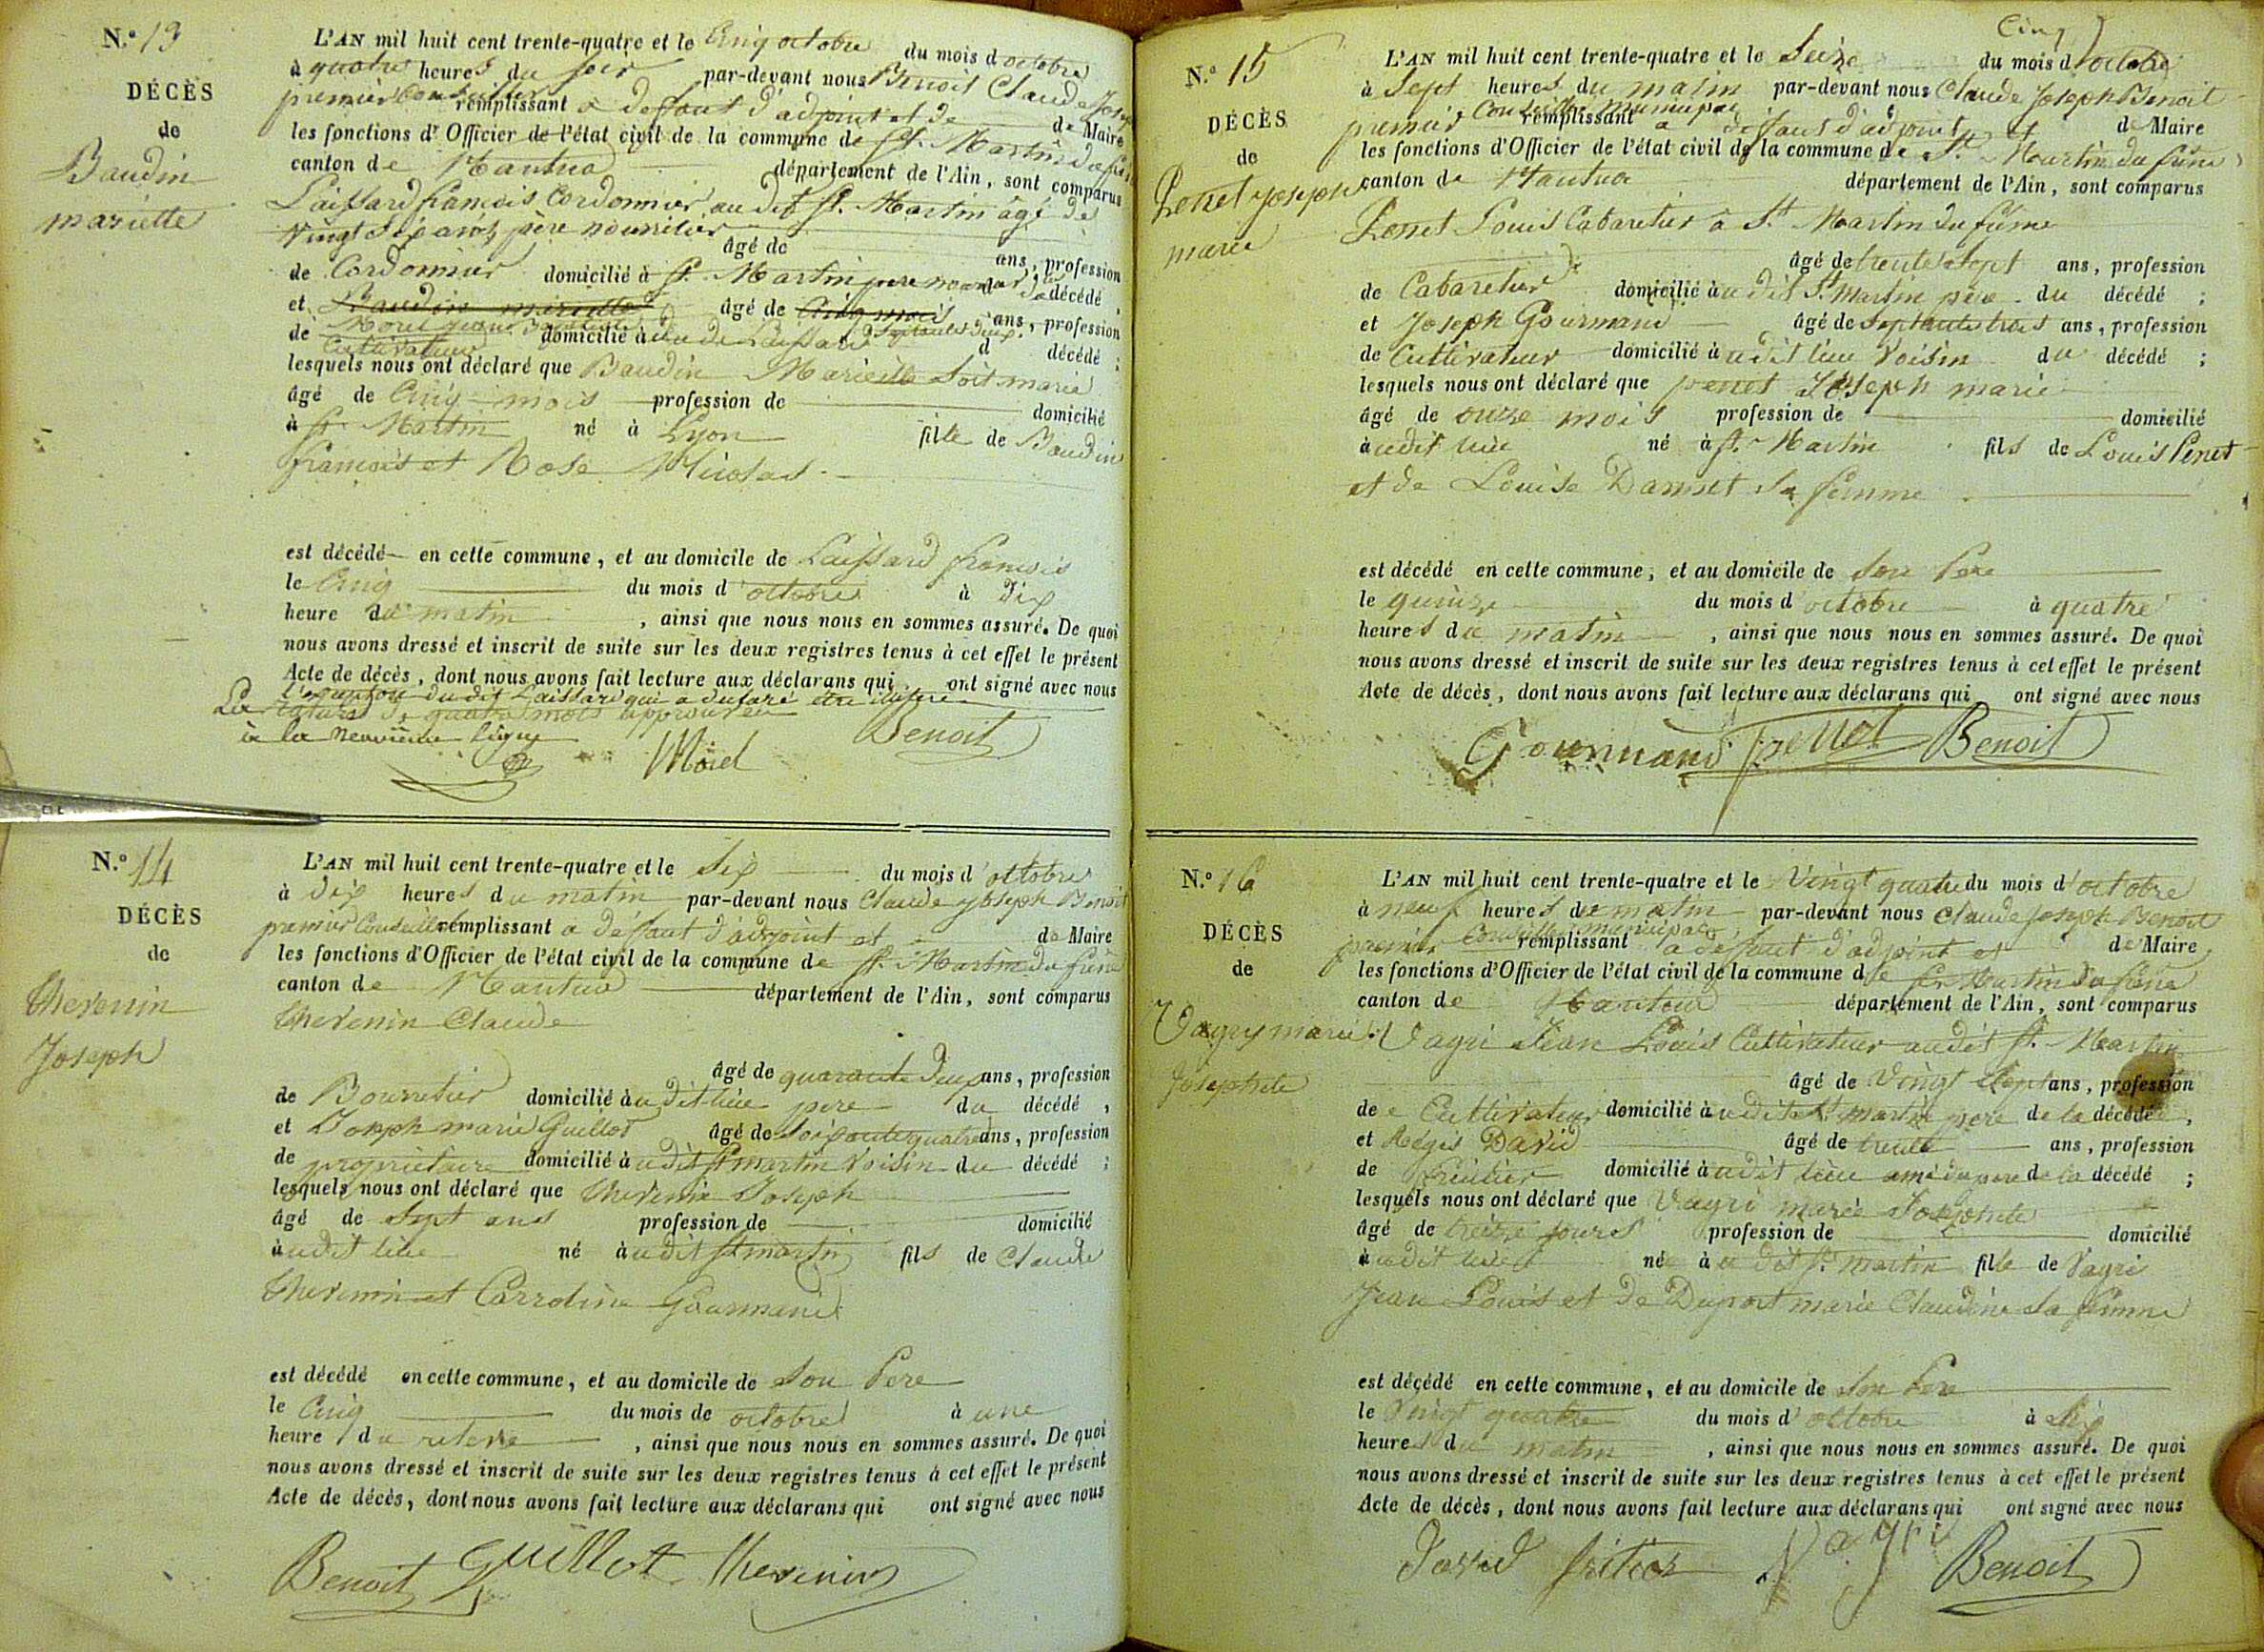 N.° 13
DÉCÈS
de
Baudin
mariette
L'AN mil huit cent trente-quatre et le Cinq octobre du mois d octobre
à quatre heures du soir par-devant nous Benoit Claude Joseph
premier Conseiller remplissant a deffaut d'adjoint et de de Maire
les fonctions d' Officier de l'état civil de la commune de St. Martin du frêne
canton de Nantua département de l'Ain, sont comparus
Laissard francois Cordonnier au dit St. Martin âgé de
Vingt Six ans, père nourricier âgé de ans, profession
de Cordonnier domicilié à St. Martin pere nourricier de la décédé,
et Baudin mariette âgé de Cinq mois ans, profession
Morel Jean Baptiste Septante Deux
de Cultivateur domicilié à du dit Laissard d décédé ;
lesquels nous ont déclaré que Baudin Mariette Soit marie
âgé de Cinq mois profession de domicilié
à St. Martin né à Lyon fille de Baudin
francois et Rose Nicolas
est décédé en cette commune, et au domicile de Laissard francois
le Cinq du mois d octobre à dix
heure du matin, ainsi que nous nous en sommes assuré. De quoi
nous avons dressé et inscrit de suite sur les deux registres tenus à cet effet le présent
Acte de décès, dont nous avons fait lecture aux déclarans qui ont signé avec nous
l'exeption du dit Laissard qui a declaré être illitere
La rature de quatre mots approuvée
à la neuvième ligne
Morel Benoit
N.° 14
DÉCÈS
de
thevenin
Joseph
L'AN mil huit cent trente-quatre et le Six du mois d'octobre
à dix heures du matin par-devant nous Claude joseph Benoit
premier Conseiller remplissant a deffaut d'adjoint et de Maire
les fonctions d'Officier de l'état civil de la commune de St. Martin du frêne
canton de Nantua département de l'Ain, sont comparus
thevenin Claude
âgé de quarante deux ans, profession
de Bourrelier domicilié à udit lieu pere du décédé,
et Joseph marie Guillot âgé de Soixante quatre ans, profession
de propriétaire domicilié à udit St martin Voisin du décédé ;
lesquels nous ont déclaré que thevenin Joseph
âgé de Sept ans profession de domicilié
à udit lieu né à udit St martin fils de Claude
thevenin et Carroline Gourmand
est décédé en cette commune, et au domicile de Son Pere
le Cinq du mois de octobre à une
heure du, ainsi que nous nous en sommes assuré. De quoi
nous avons dressé et inscrit de suite sur les deux registres tenus à cet effet le présent
Acte de décès, dont nous avons fait lecture aux déclarans qui ont signé avec nous
Benoit Guillot thevenin
N.° 15
DÉCÈS
de
Penet joseph
marie
L'AN mil huit cent trente-quatre et le Seize du mois d'octobre
à Sept heures du matin par-devant nous Claude Joseph Benoit
premier Conseiller Municipal remplissant a deffaut d'adjoint et de Maire
les fonctions d'Officier de l'état civil de la commune de St. Martin du frêne
canton de Nantua département de l'Ain, sont comparus
Penet Louis Cabaretier à St. Martin du frêne
âgé de trente Sept ans, profession
de Cabaretier domicilié à udit St. Martin père du décédé ;
et Joseph Gourmand âgé de Septante trois ans, profession
de Cultivateur domicilié à udit lieu Voisin du décédé ;
lesquels nous ont déclaré que penet Joseph marie
âgé de onze mois profession de domicilié
à udit lieu né à St. Martin fils de Louis Penet
et de Louise Danset Sa femme
est décédé en cette commune, et au domicile de Son Pere
le quinze du mois d'octobre à quatre
heures du matin, ainsi que nous nous en sommes assuré. De quoi
nous avons dressé et inscrit de suite sur les deux registres tenus à cet effet le présent
Acte de décès, dont nous avons fait lecture aux déclarans qui ont signé avec nous
Gourmand Penet Benoit
N.° 16
DÉCÈS
de
Vagry marie
Josephete
L'AN mil huit cent trente-quatre et le Vingt quatre du mois d'octobre
à neuf heures du matin par-devant nous Claude Joseph Benoit
premier Conseiller municipal remplissant a deffaut d'adjoint et de Maire
les fonctions d'Officier de l'état civil de la commune de St. Martin du frêne
canton de Nantua département de l'Ain, sont comparus
Vagri Jean Louis Cultivateur audit St. Martin
âgé de Vingt Sept ans, profession
de Cultivateur domicilié à udit St martin pere de la décédée,
et Régis David âgé de trente ans, profession
de fruitier domicilié à udit lieu ami du pere de la décédé ;
lesquels nous ont déclaré que Vagri marie Josephete
âgé de treize jours profession de domicilié
à udit lieu née à udit St. martin fille de Vagri
Jean Louis et de Duport marie Claudine Sa femme
est décédé en cette commune, et au domicile de Son Pere
le Vingt quatre du mois d'octobre à Six
heures du matin, ainsi que nous nous en sommes assuré. De quoi
nous avons dressé et inscrit de suite sur les deux registres tenus à cet effet le présent
Acte de décès, dont nous avons fait lecture aux déclarans qui ont signé avec nous
David fritier Vagri Benoit